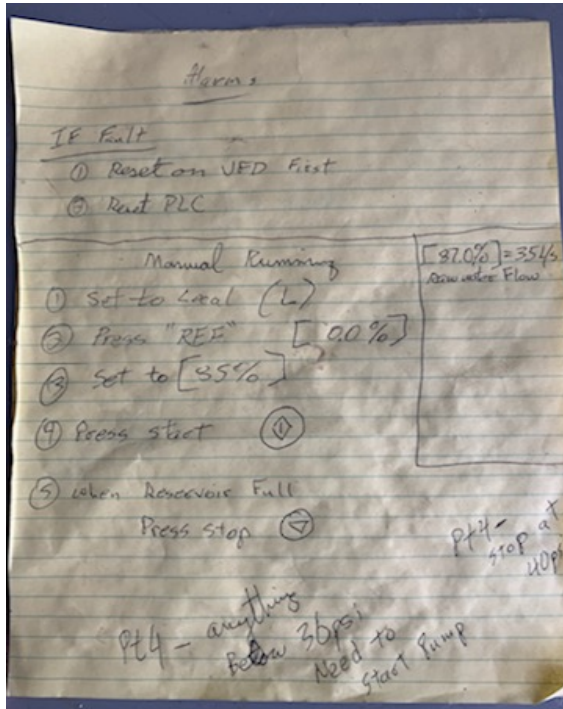 Alarms
IF Fault
① Reset on VFD First
② Reset PLC
Manual Running
① Set to Local (L)
② Press "REF" [0.0%]
③ Set to [85%]
④ Press start
⑤ when Reservoir Full
Press stop
[87.0%] = 35L/s
Raw water Flow
Pt4 - stop at
40ps
Pt4 - anything
Below 36psi
Need to
Start Pump